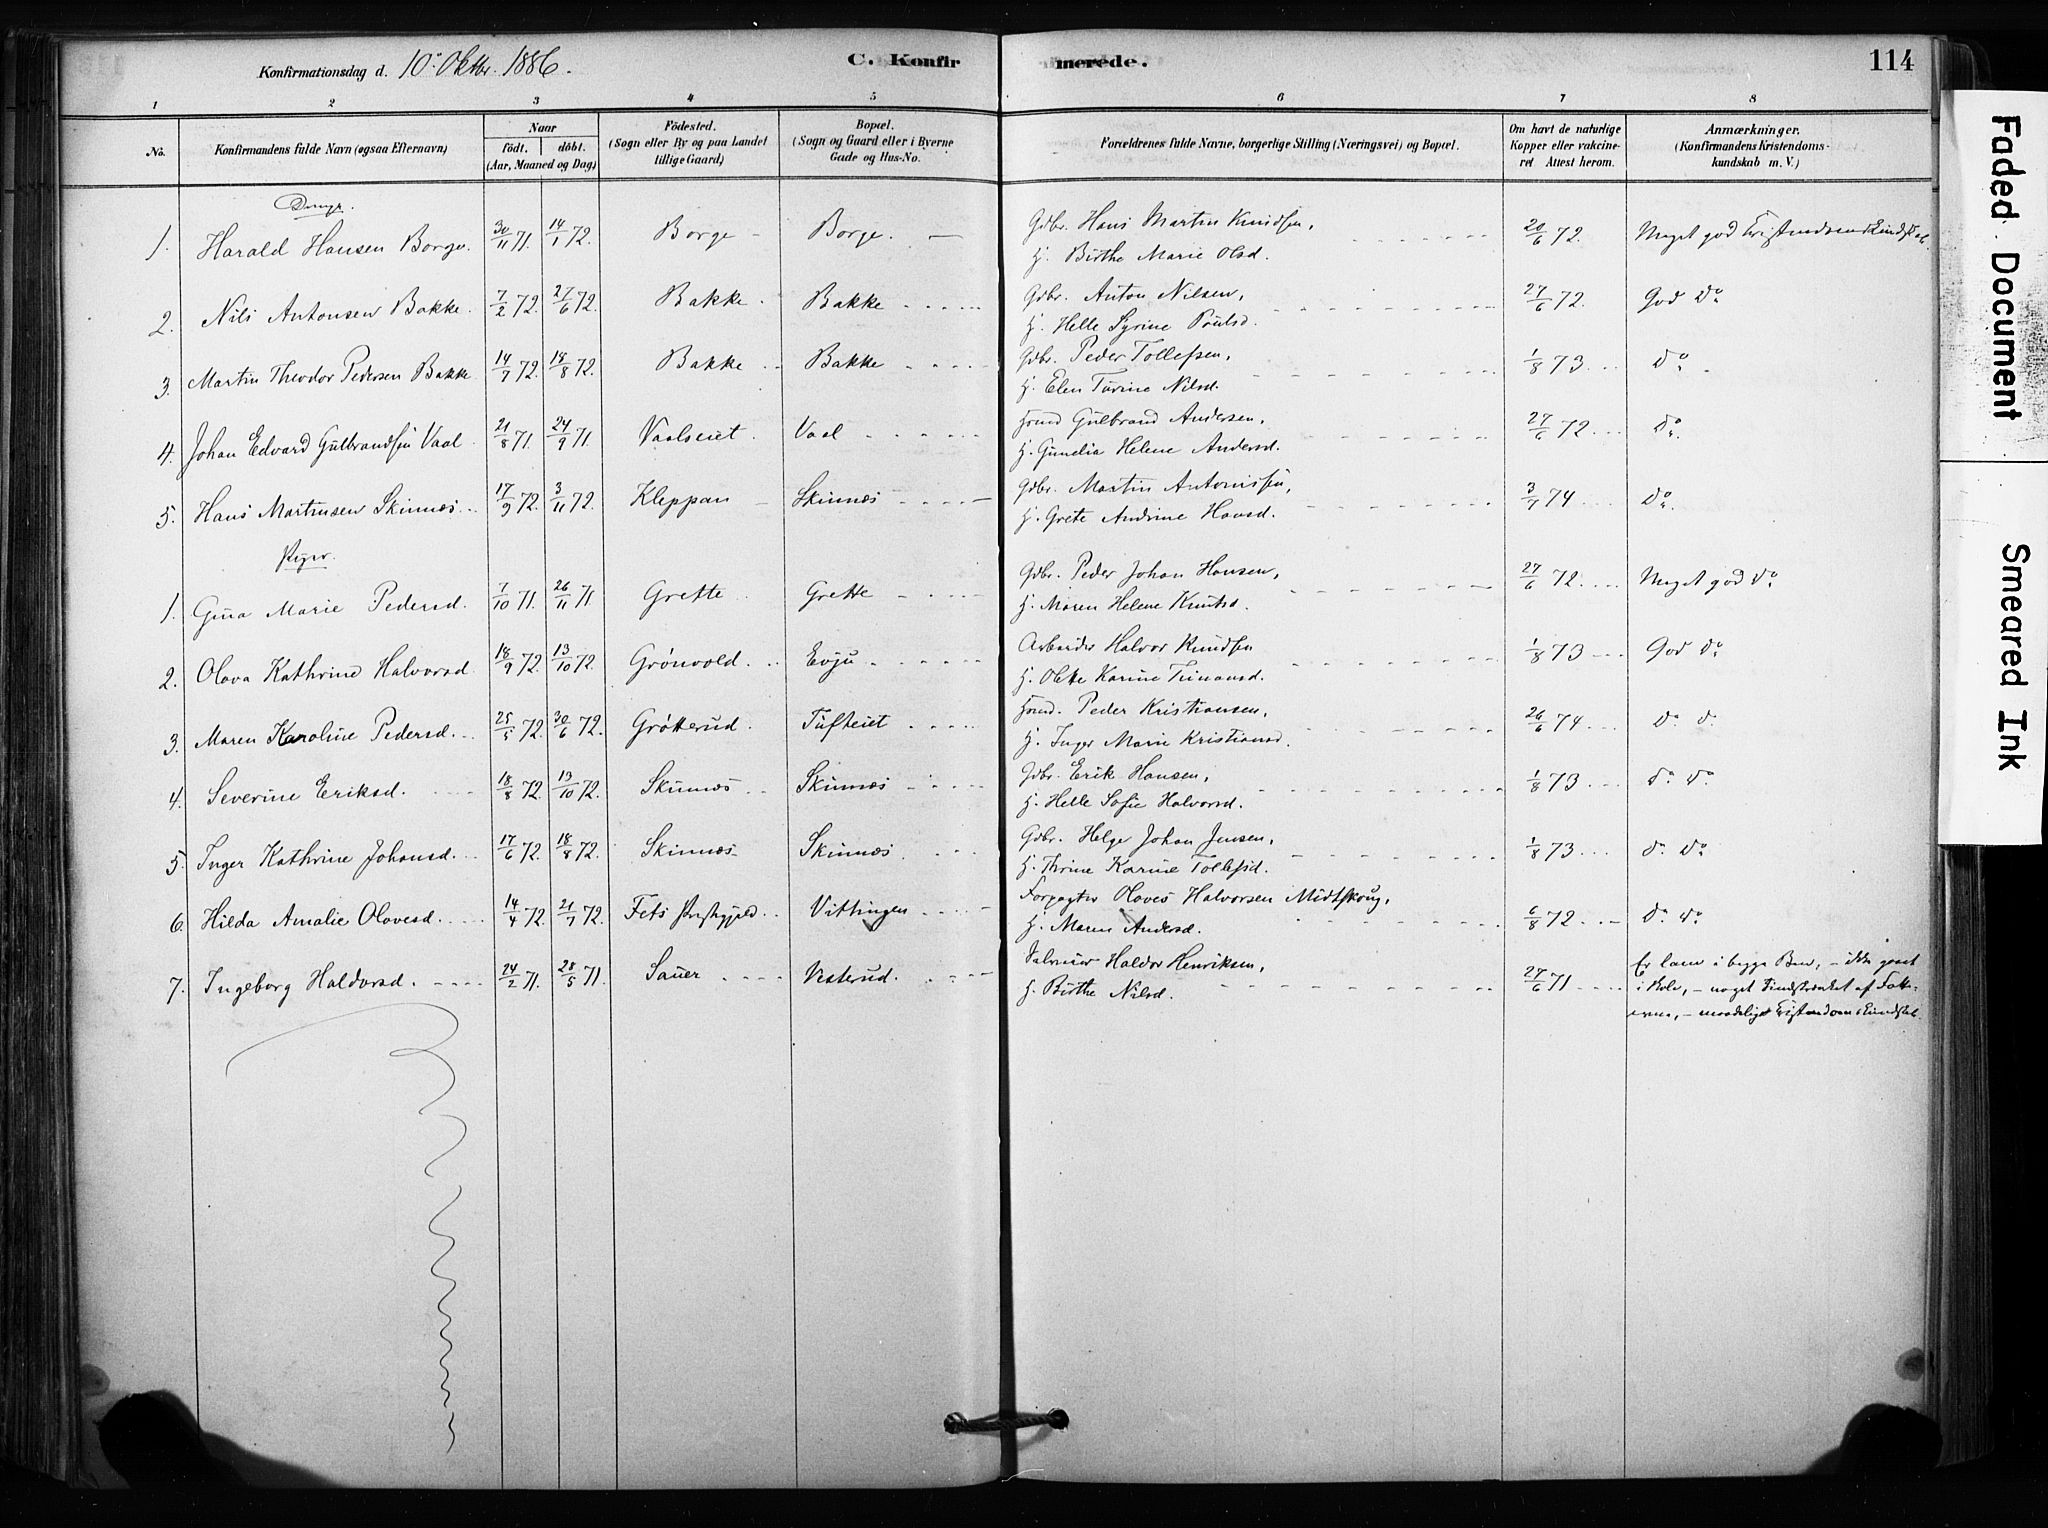 Konfirmationsdag d. 10de Oktbr. 1886. C. Konfirmerede. 114
1 2 3 4 5 6 7 8
No. Konfirmandens fulde Navn (ogsaa Efternavn) Naar födt. döbt. (Aar, Maaned og Dag) Födested. (Sogn eller By og paa Landet tillige Gaard) Bopæl. (Sogn og Gaard eller i Byerne Gade og Hus-No. Forældrenes fulde Navne, borgerlige Stilling (Næringsvei) og Bopæl. Om havt de naturlige Kopper eller vakcineret Attest herom. Anmærkninger. (Konfirmandens Kristendomskundskab m. V.)
Drenge.
1. Harald Hansen Borge. 30/11 71. 14/1 72. Borge - Borge. - Gdbr. Hans Martin Knudsen, 20/6 72. Meget god Kristendomskundskab.
H. Birthe Marie Olsd.
2. Nils Antonsen Bakke. 7/2 72. 27/6 72. Bakke. Bakke Gdbr. Anton Nilsen, 27/6 72. God Do
H. Helle Syrine Poulsd.
3. Martin Theodor Pedersen Bakke 14/7 72. 18/8 72. Bakke Bakke Gdbr. Peder Tollefsen, 1/8 73 Do
H. Elen Turine Nilsd.
4. Johan Edvard Gulbrandsen Vaal 21/8 71. 24/9 71. Vaalseiet Vaal Hmd Gulbrand Andersen, 27/6 72 Do.
H. Gunelia Helene Andersd.
5. Hans Martinsen Skinnes 17/9 72. 3/11 72. Kleppan - Skinnes Gdbr. Martin Antonissen, 3/7 74 Do.
H. Grete Andrine Hansd.
Piger.
1. Gina Marie Pedersd. 7/10 71. 26/11 71 Grette Grette Gdbr. Peder Johan Hansen, 27/6 72. Meget god Do
H. Maren Helene Knutsd.
2. Olava Kathrine Halvorsd. 18/9 72. 13/10 72. Grönvold. Evju Arbeider Halvor Knudsen 1/8 73 God Do
H. Olette Karine Timansd.
3. Maren Karoline Pedersd. 25/5 72. 30/6 72. Grötterud. Tufteiet Hmd. Peder Kristiansen, 26/6 74 Do Do
H. Inger Marie Kristiansd.
4. Severine Eriksd. 18/8 72. 13/10 72. Skinnes Skinnes Gdbr. Erik Hansen, 1/8 73 Do Do
H. Helle Sofie Halvorsd.
5. Inger Kathrine Johansd. 17/6 72. 18/8 72. Skinnes Skinnes Gdbr. Helge Johan Jensen, 1/8 73 Do Do
H. Thrine Karine Tollefsd.
6. Hilda Amalie Olavesd. 14/4 72. 21/7 72. Fets Præstegjeld Vittingen Forpagter Olaves Halvorsen Midtskoug, 6/8 72 Do Do
H. Maren Andersd.
7. Ingeborg Haldorsd. 24/2 71. 28/5 71. Sauer Vesterud. Haldor Henriksen, 27/6 71 Er lam i begge Ben, - ikke gaaet
H. Birthe Nilsd. i Skole, - noget indskrænket af
- maadelig Kristendomskundskab.
Faded Document
Smeared Ink